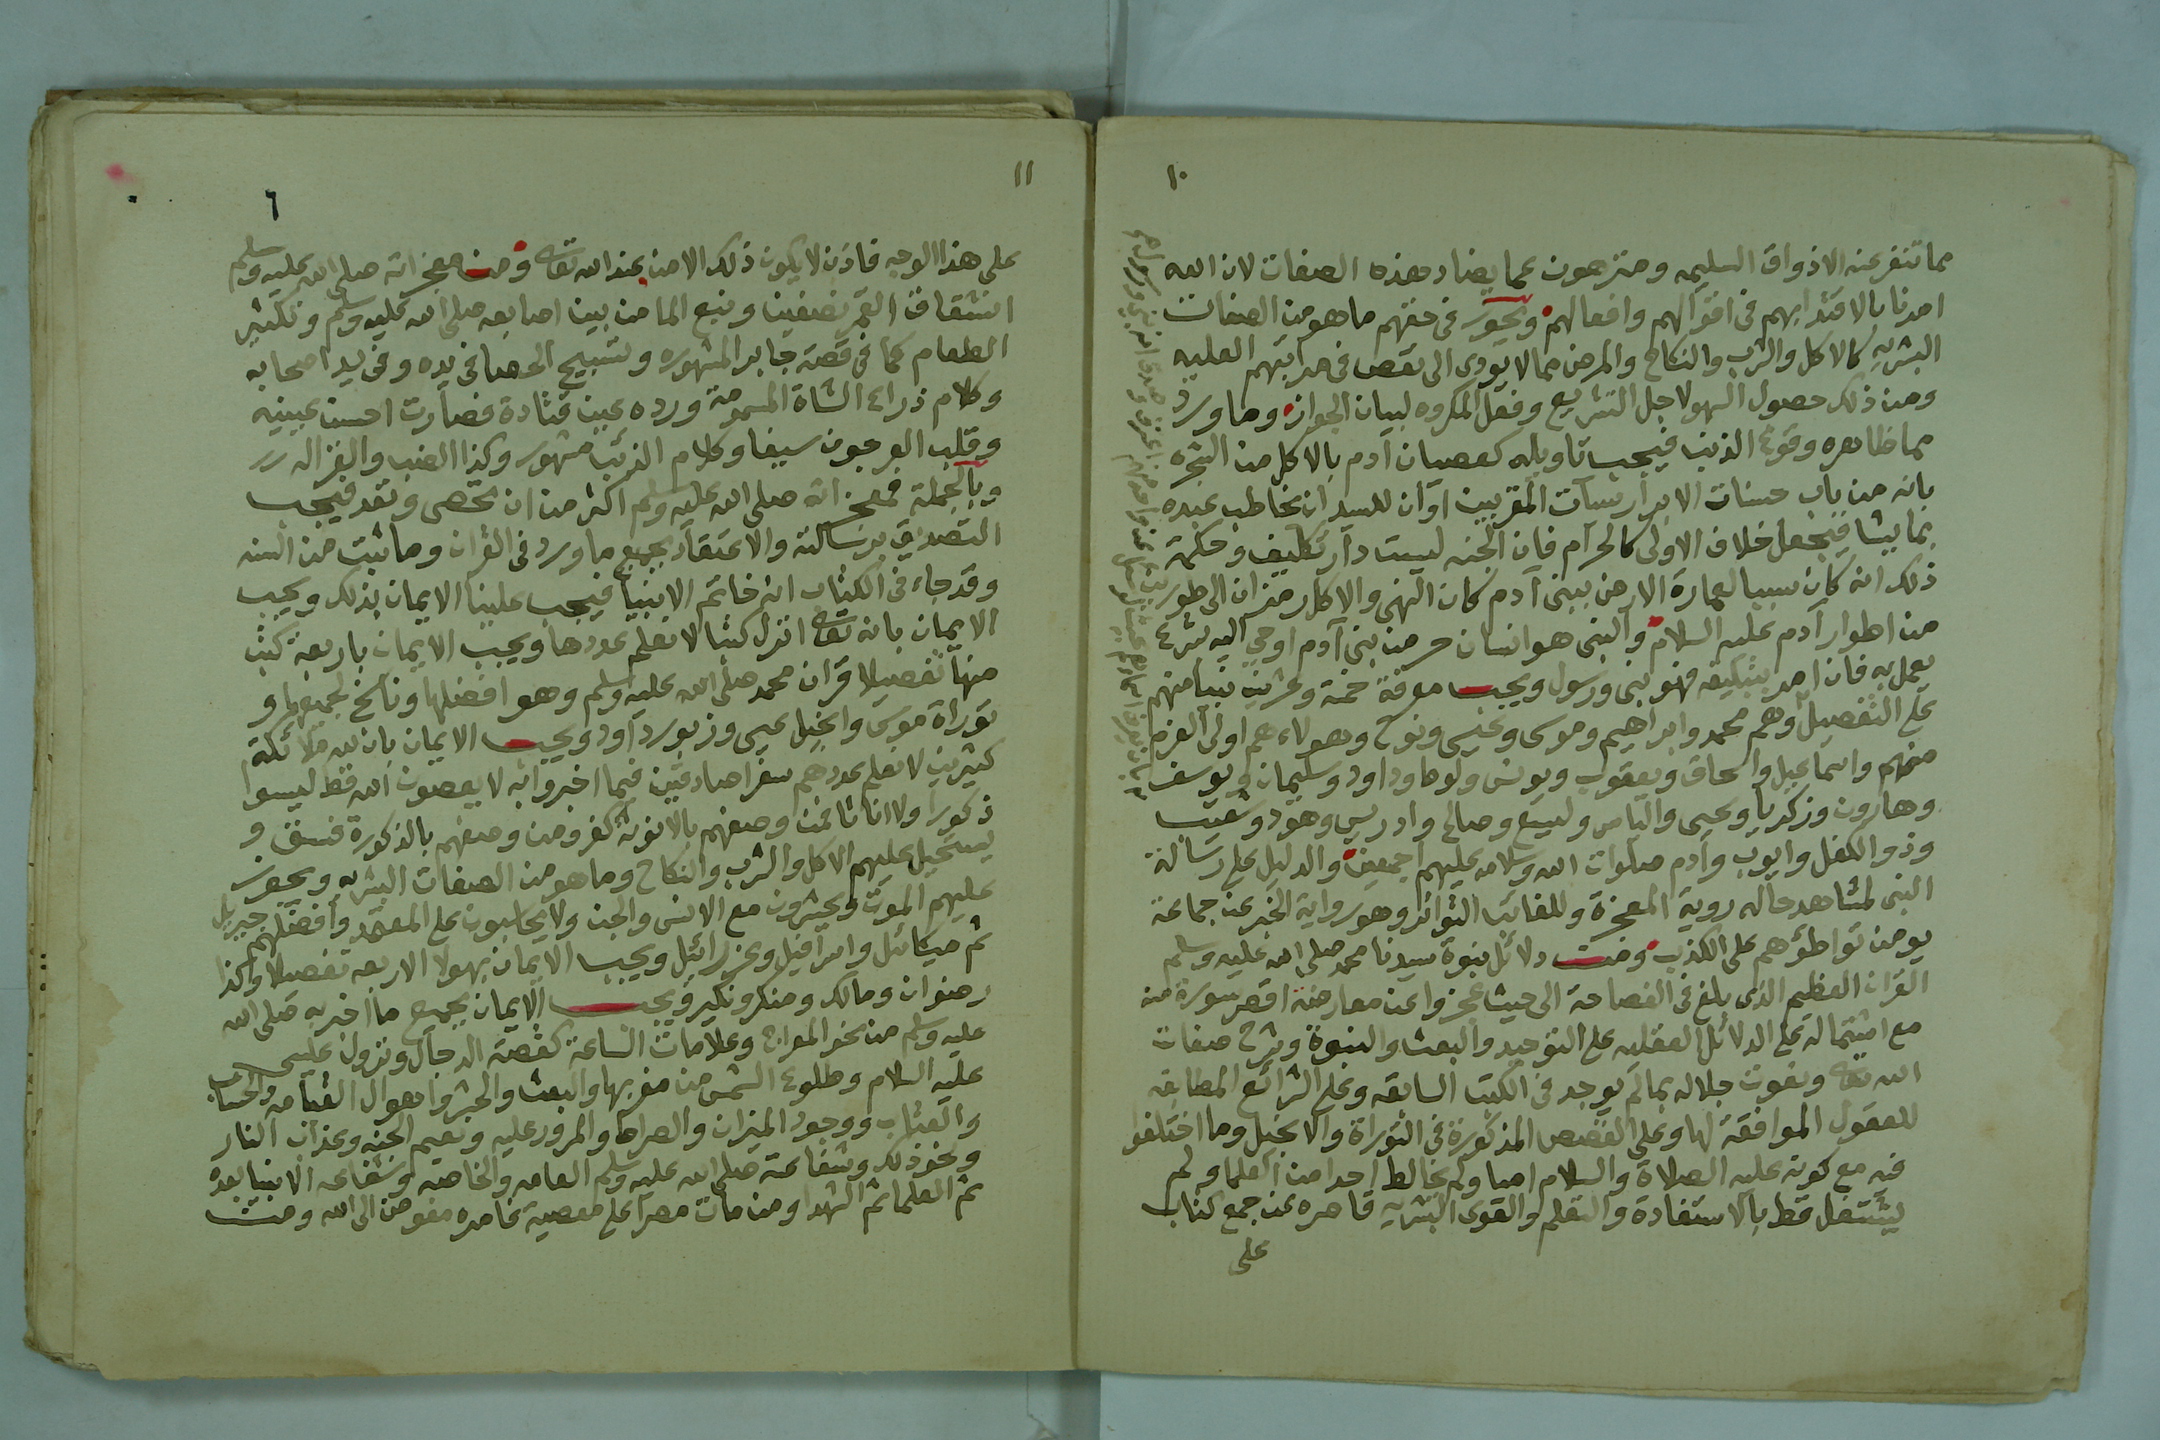 ١٠
مما تنفر عنه الاذواق السليمه ومنزهون عما يضاد هذه الصفات لان الله
امرنا بالاقتدا بهم فى اقوالهم وافعالهم ويجوز فى حقهم ما هو من الصفات
البشريه كالاكل والشرب والنكاح والمرض مما لا يودى الى نقص فى مراتبهم العليه
ومن ذلك حصول السهو لاجل التشريع وفعل المكروه لبيان الجواز وما ورد
مما ظاهره وقوع الذنب فيجب تاويله كعصيان آدم بالاكل من الشجره
بانه من باب حسنات الابرار سيآت المقربين او ان للسيد ان يخاطب عبده
بما يشا فيجعل خلاف الاولى كالحرام فان الجنه ليست دار تكليف وحكمة
ذلك انه كان سببا لعمارة الارض ببنى آدم كان النهى والاكل رمزان الى طور
من اطوار آدم عليه السلام والنبى هو انسان حر من بنى آدم اوحى اليه بشرع
يعمل به فان امر بتبليغه فهو نبى ورسول ويجب معرفة خمسة وعشرين نبيا منهم
على التفصيل وهم محمد وابراهيم وموسى وعيسى ونوح وهولاء هم اولى العزم
منهم واسماعيل واسحاق ويعقوب ويونس ولوط وداود وسليمان ويوسف
وهارون وزكريا ويحيى والياس وليسع وصالح وادريس وهود وشعيب
وذو الكفل وايوب وآدم صلوات الله وسلامه عليهم اجمعين والدليل على رسالة
النبى لمشاهد حاله روية المعجزة وللغائب التواتر وهو رواية الخبر عن جماعة
يومن تواطؤهم على الكذب ومن دلائل نبوة سيدنا محمد صلى الله عليه وسلم
القرآن العظيم الذى بلغ فى الفصاحة الى حيث عجزوا عن معارضة اقصر سورة منه
مع اشتماله على الدلائل العقليه على التوحيد والبعث والنبوة وشرح صفات
الله تعالى ونعوت جلاله بما لم يوجد فى الكتب السابقه وعلى الشرائع المطابقه
للعقول الموافقة لها وعلى القصص المذكورة فى التوراة والانجيل وما اختلفوا
فيه مع كونه عليه الصلاة والسلام اميا ولم يخالط احدا من العلما ولم
يشتغل قط بالاستفادة والتعلم والقوى البشريه قاصره عن جمع كتاب
على
١١
٦
على هذا الوجه فاذن لا يكون ذلك الا من عند الله تعالى ومن معجزاته صلى الله عليه وسلم
انشقاق القمر نصفين ونبع الما من بين اصابعه صلى الله عليه وسلم وتكثير
الطعام كما فى قصة جابر المشهوره وتسبيح الحصا فى يده وفى يد اصحابه
وكلام ذراع الشاة المسمومة ورده عين قتادة فصارت احسن عينيه
وقلب العرجون سيفا وكلام الذئب مشهور وكذا الضب والغزاله
وبالجملة فمعجزاته صلى الله عليه وسلم اكثر من ان تحصى وتعد فيجب
التصديق برسالته والاعتقاد بجميع ما ورد فى القران وما ثبت من السنه
وقد جاء فى الكتاب انه خاتم الانبيا فيجب علينا الايمان بذلك ويجب
الايمان بانه تعالى انزل كتبا لا نعلم عددها ويجب الايمان باربعة كتب
منها تفصيلا قران محمد صلى الله عليه وسلم وهو افضلها وناسخ لجميعها و
توراة موسى وانجيل عيسى وزبور داود ويجب الايمان بان لله ملائكة
كثيرين لا نعلم عددهم سفرا صادقين فيما اخبروا به لا يعصون الله قط ليسوا
ذكورا ولا اناثا فمن وصفهم بالانوثة كفر ومن وصفهم بالذكورة فسق و
يستحيل عليهم الاكل والشرب والنكاح وما هو من الصفات البشريه ويجوز
عليهم الموت ويحشرون مع الانس والجن ولا يحاسبون على المعتمد وافضلهم جبريل
ثم ميكائل واسرافيل وعزرائيل ويجب الايمان بهولا الاربعه تفصيلا وكذا
رضوان ومالك ومنكر ونكير ويجب الايمان بجميع ما اخبر به صلى الله
عليه وسلم من نحو المعراج وعلامات الساعة كقصة الدجال ونزول عيسى
عليه السلام وطلوع الشمس من مغربها والبعث والحشر واهوال القيامه والحساب
والعقاب ووجود الميزان والصراط والمرور عليه ونعيم الجنه وعذاب النار
ونحو ذلك وشفاعته صلى الله عليه وسلم العامه والخاصه وشفاعه الانبيا بعده
ثم العلما ثم الشهدا ومن مات مصرا على معصية فامره مفوض الى الله ومن